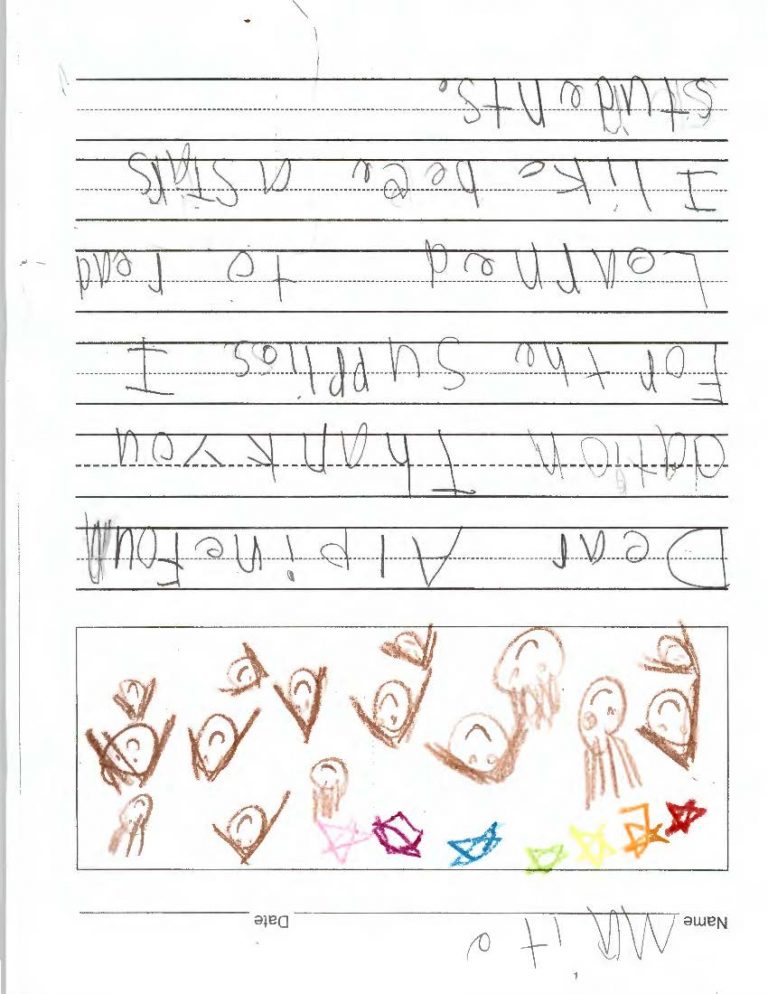 Name Maite Date
Dear Alpine Foun
dation Thank you
For the Supplies I
Learned to read
I like beer a stars
students.